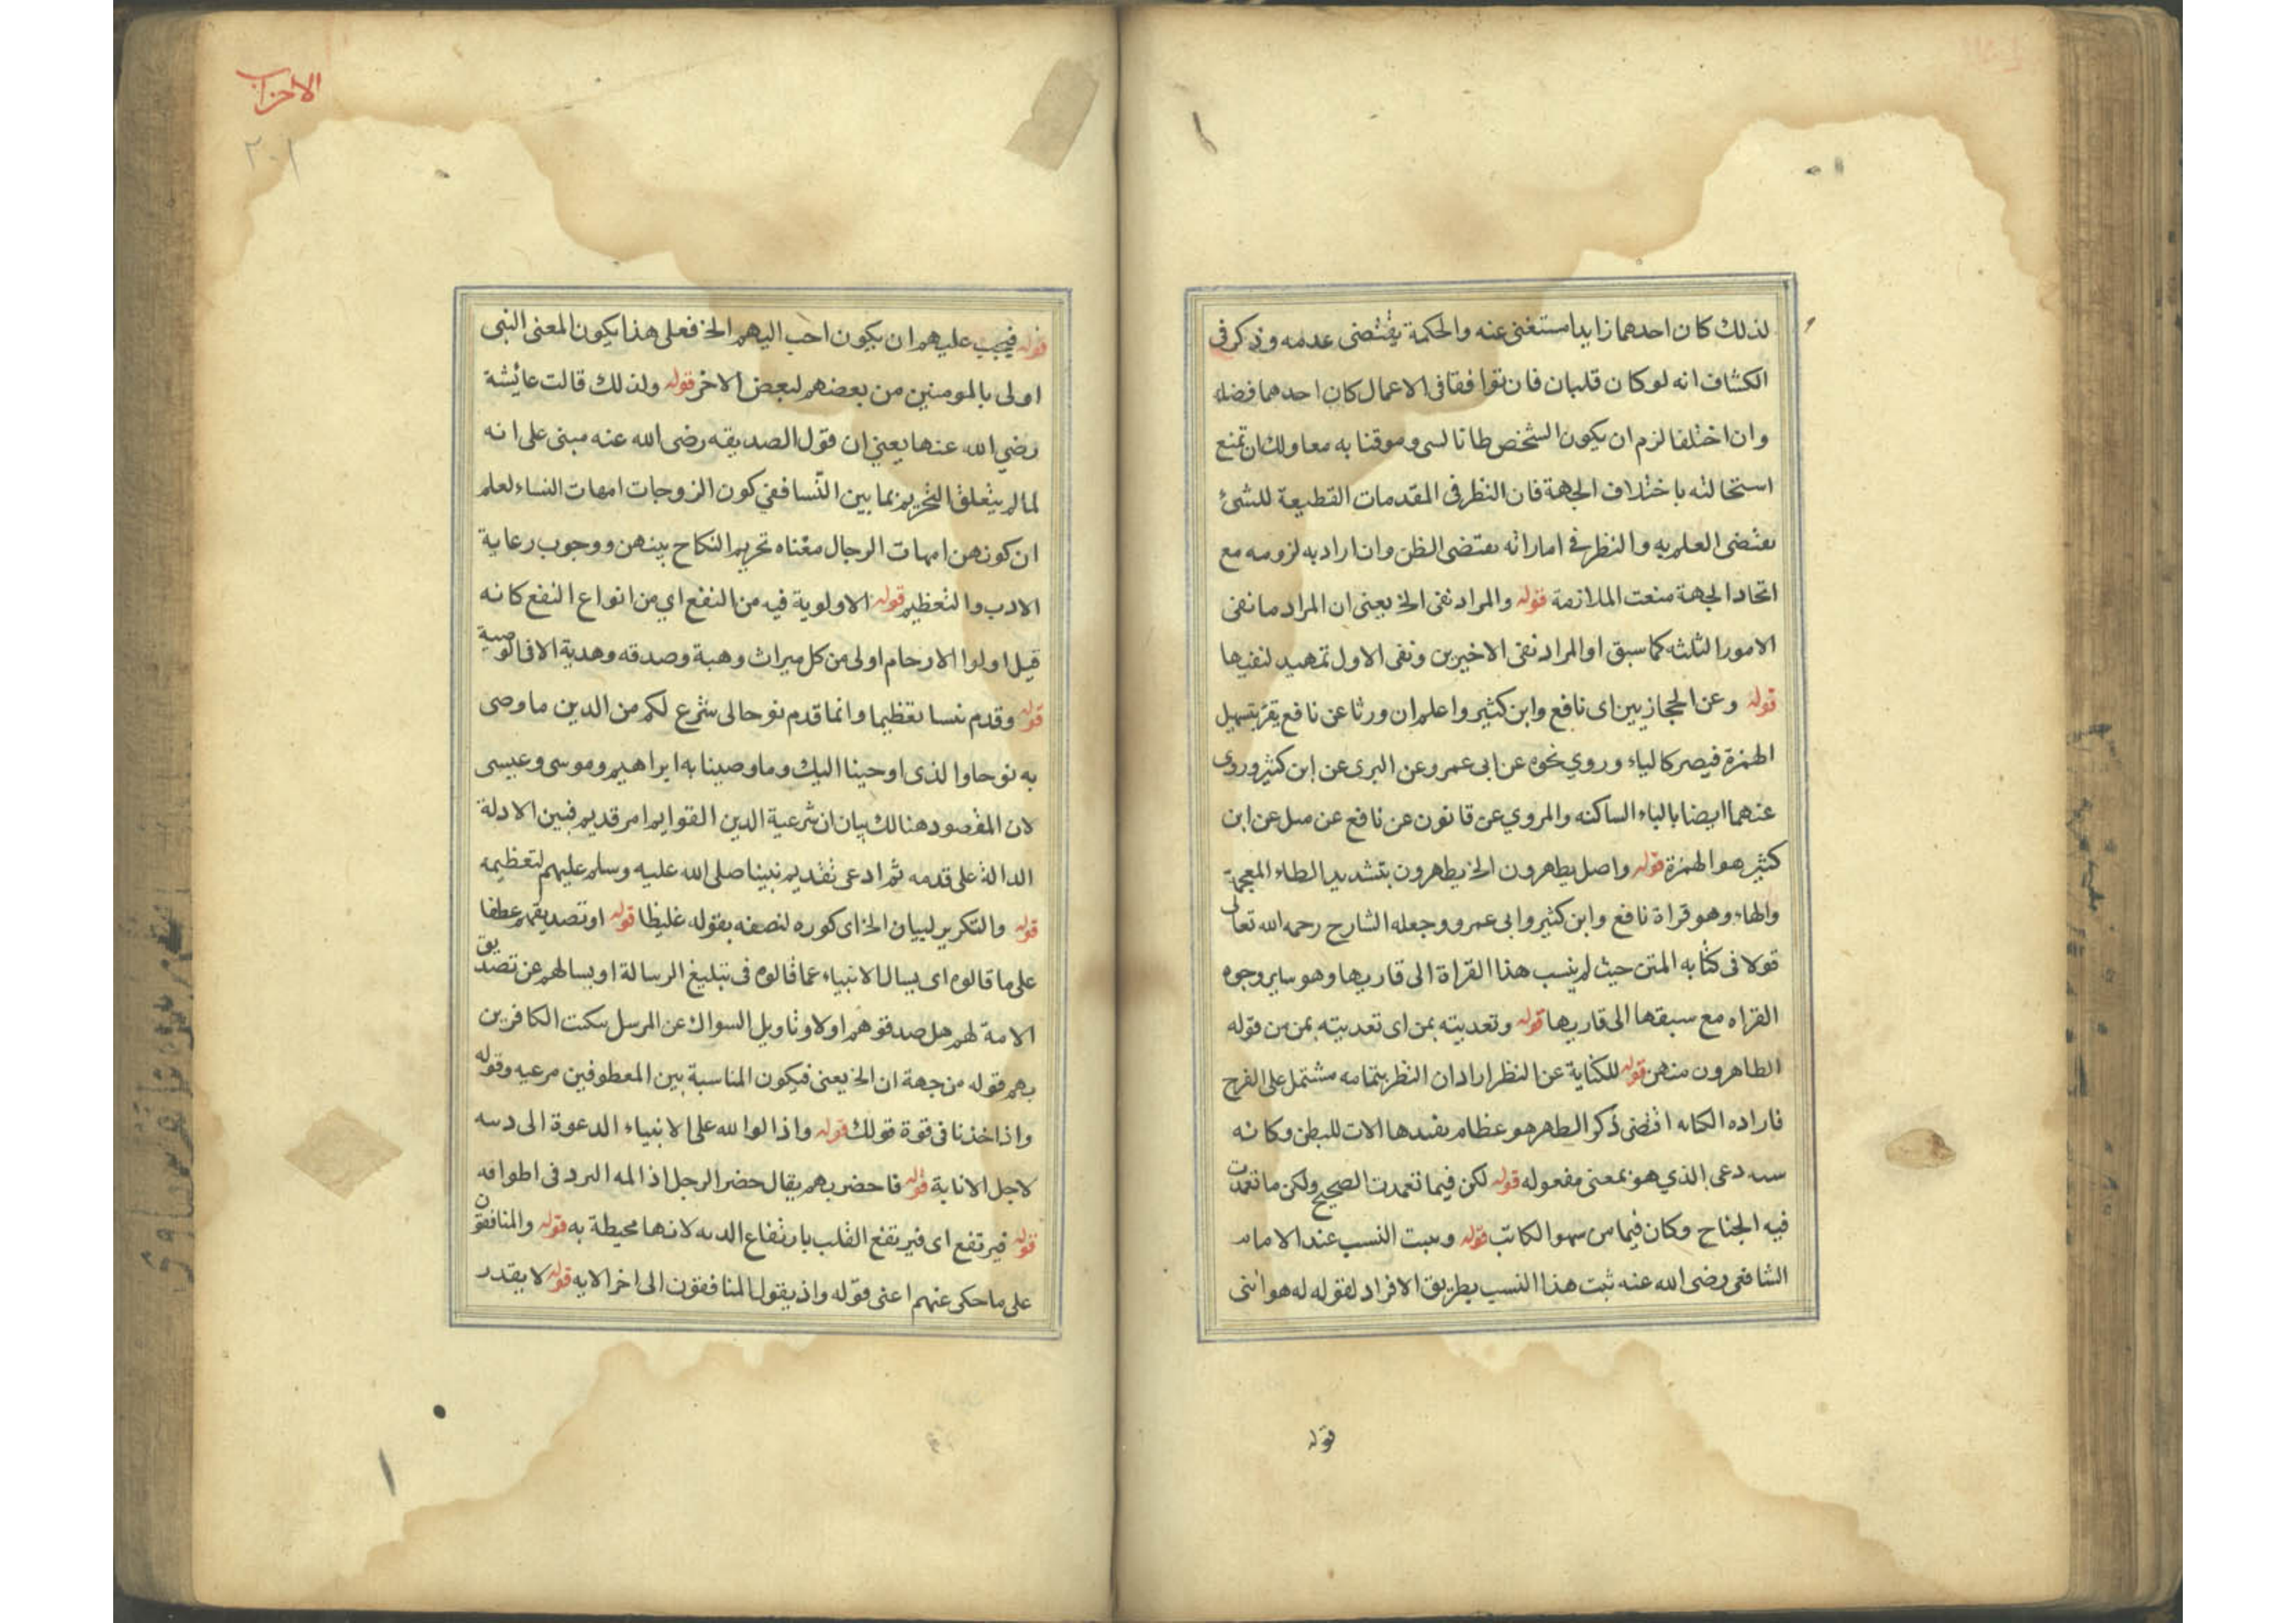 لذلك كان احدهما زايدا ستغنى عنه والحكمة يقتضى عدمه وذكر فى
الكشاف انه لو كان قلبان فان توافقا فى الاعمال كان احدهما فضله
وان اختلفا لزم ان يكون الشخص طانا لسى وموقنا به معا ولك ان تمنع
استحالته باختلاف الجهة فان النظر فى المقدمات القطيعة للشئ
يقتضى العلم به والنظر فى اماراته يقتضى الظن وان اراد به لزومه مع
اتحاد الجهة منعت الملازمة قوله والمراد نفى الخ يعنى ان المراد ما نفى
الامور الثلثه كما سبق او المراد نفى الاخيرين ونفى الاول تمهيد لنفيها
قوله وعن الحجازيين اى نافع وابن كثير واعلم ان ورثا عن نافع يقر بتسهيل
الهمزة فيصر كالياء وروي نحوه عن ابى عمر وعن البرى عن ابن كثير وروى
عنهما ايضا بالياء الساكنه والمروي عن قانون عن نافع عن مىل عن ابن
كثير هو الهمزة قوله واصل يطهرون الخ يطهرون بتشديد الطاء المعجمة
والهاء وهو قراة نافع وابن كثير وابى عمرو وجعله الشارح رحمه الله تعالى
قولا فى كتابه المتن حيث لم ينسب هذا القراة الى قاريها وهو ساير وجوه
القراه مع سبقها الى قاريها قوله وتعديته بمن اى تعديته بمن من قوله
الطاهرون منهن قوله للكناية عن النظر اراد ان النظر بتمامه مشتمل على الفرج
فاراده الكنايه اقتضى ذكر الطهر هو عظام يفندها الات للبطن وكانه
دعى الذي هو بمعنى مفعوله قوله لكن فيما تعمدت الصحيح ولكن ما تعمدت
فيه الجناح وكان فيما من سهو الكاتب قوله وىىبت النسب عند الامام
الشافعى رضى الله عنه ثبت هذا النسب بطريق الافراد لقوله له هو ابنى
قوله
الاحزاب
٢٠١
قوله فيجب عليهم ان يكون احب اليهم الخ فعلى هذا يكون المعنى النبى
اولى بالمومنين من بعضهم لبعض الاخر قوله ولذلك قالت عائشة
رضي الله عنها يعني ان قول الصديقه رضى الله عنه مبنى على انه
لما لم يتعلق التحريم بما بين النسا فغى كون الزوجات امهات النساء لعلم
ان كونهن امهات الرجال معناه تحريم النكاح بينهن ووجوب رعاية
الادب والتعظيم قوله الاولوية فيه من النفع اي من انواع النفع كانه
قيل اولوا الارحام اولى من كل ميراث وهبة وصدقه وهدية الا فى الوصية
قوله وقدم نبينا تعظيما وانما قدم نوحا لى شرع لكم من الدين ما وصى
به نوحا والذى اوحينا اليك وما وصينا به ابراهيم وموسى وعيسى
لان المقصود هنالك بيان ان شرعية الدين القوايم امر قديم فبين الادلة
الدالة على قدمه ثم ادعى تقديم نبينا صلى الله عليه وسلم عليهم لتعظيمه
قوله والتكرير لبيان الخ اى كوره لنصفه بقوله غليظا قوله او تصديقهم عطفا
على ما قالوه اى يسال الانبياء عما قالوه فى تبليغ الرسالة او يسالهم عن تصديق
الامة لهم هل صدقوهم اولا وتاويل السواك عن المرسل ىىكت الكافرين
بهم قوله من جهة ان الخ يعنى فيكون المناسبة بين المعطوفين مرعيه وقوله
واذ اخذنا فى قوة قولك قوله واذا لوا لله على الانبياء الدعوة الى دىىه
لاجل الانابة قوله فاحضر بهم يقال حضر الرجل اذ المه البرد فى اطوافه
قوله فيرتفع اى فيرتفع القلب بارتفاع الدىه لانها محيطة به قوله والمنافقون
على ما حكى عنهم اعنى قوله واذ يقول المنافقون الى اخر الايه قوله لا يقدر